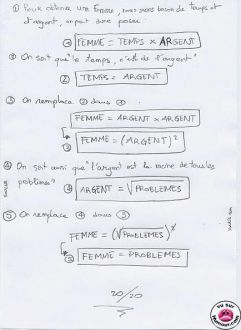 ① Pour obtenir une femme, nous avons besoin de temps et
d'argent, on peut donc poser
① FEMME = TEMPS × ARGENT
② On sait que "le temps, c'est de l'argent"
② TEMPS = ARGENT
③ On remplace ② dans ①
FEMME = ARGENT × ARGENT
③ FEMME = (ARGENT)²
④ On sait aussi que "l'argent est la racine de tous les
problèmes"
④ ARGENT = √PROBLEMES
⑤ On remplace ④ dans ③
FEMME = (√PROBLEMES)²
⑤ FEMME = PROBLEMES
20/20
VU SUR